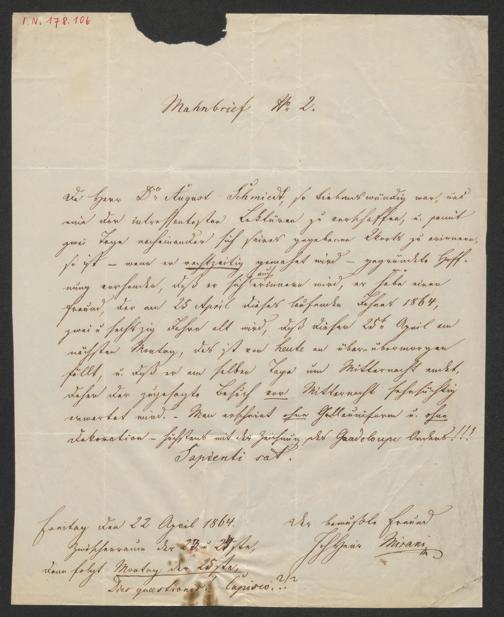 I.N. 178.106
Mahnbrief No 2.
Da Herr Dr August Schmidt so liebenswürdig war, uns
eine der interessantesten Lektüren zu verschaffen, u. somit
zwei Tage nacheinander sich seines gegebenen Worts zu erinnern,
so ist – wenn er rechtzeitig gemahnt wird – gegründete Hoff-
nung vorhanden, daß er sich auch erinnern wird, er habe einen
Freund, der am 25 April dieses laufenden Jahres 1864,
zwei u sechszig Jahre alt wird, daß dieser 25te April am
nächsten Montag, das ist von heute an über-übermorgen
fällt, u. daß er am selben Tage um Mitternacht endet,
daher der zugesagte Besuch vor Mitternacht sehnsüchtig
erwartet wird. – Man erscheint ohne Galauniform u. ohne
Dekoration – höchstens mit der Zeichnung des Guadeloupe Ordens!!!
Sapienti sat.
Freitag den 22 April 1864.
Zwischenraum der 23 u 24ste,
dann folgt Montag der 25ste,
Dies quaestionis! Capisco?!?
Der bewußte Freund
Mirani